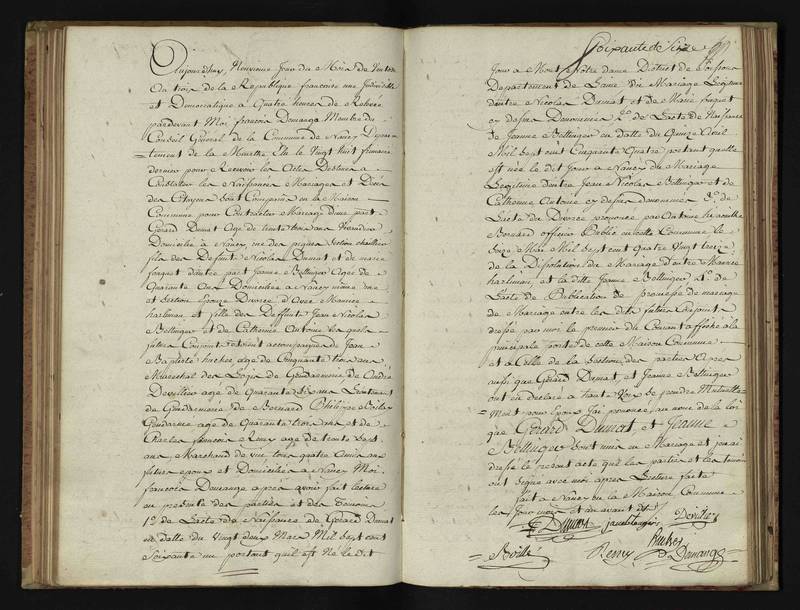 Aujourd'huy Neuvieme Jour du Mois de Ventose
an trois de la Republique francoise une Indivisible
et Democratique a Quatre heures de Relevée
pardevant Moi francois Domange Membre du
Conseil Général de la Commune de Nancy Depar=
=tement de la Meurthe, Elu le Vingt huit frimaire
dernier pour Recevoir les Actes Destinés a
Constater les Naissances Mariages et Deces
des Citoyens Sont Comparus en la Maison
Commune pour Contracter Mariage d'une part
Gérard Dumat agé de trente trois ans
Domicilié a Nancy rue des
fils des Defunts Nicolas Dumat et de marie
forquet d'autre part Jeanne Bellinger Agée de
Quarante ans Domiciliée a Nancy même rue
et Section Epouse Divorcé d'Avec Maurice
hartman et fille des Deffunt Jean Nicolas
Bellinger et de Catherine Antoine lesquels
futurs Conjoints etoient accompagnés de Jean
Baptiste agé de Cinquante trois ans
Marechal des Logis de Gendarmerie de André
Deville agé de Quarante ans Lieutenant
de Gendarmerie de Bernard Philippe
Gendarme agé de Quarante trois ans et de
Charles francois Remy agé de trente sept
ans Marchand de vin tous quatre amis au
futurs epoux et Domiciliés a Nancy Moi
francois Domange après avoir fait lecture
en présence des parties et des Temoins
1.° de l'acte de Naissance de Gérard Dumat
en datte du Vingt deux Mars Mil sept cent
Soixante un portant qu'il est Né le dit
Soixante et Seize
Jour a Mont Notre dame District de Soissons
Departement de Laine du Mariage Legitime
d'entre Nicolas Dumat et de Marie forquet
cy dessus Denommés 2.° de l'acte de Naissance
de Jeanne Bellinger en datte du Quinze Avril
Mil Sept cent Cinquante Quatre portant quelle
est née le dit Jour a Nancy du Mariage
Legitime d'entre Jean Nicolas Bellinger et de
Catherine Antoine cy dessus denommés 3.° de
l'acte du Divorce prononcé par Antoine
Bernard officier Public en cette Commune le
Onze Mai Mil Sept cent Quatre Vingt treize
de la Dissolution du Mariage d'entre Maurice
hartman, et la ditte Jeanne Bellinger 4.° de
l'acte de Publication de promesse de mariage
de Mariage entre les dits futurs Conjoints
dressé par moi le premier du Courant affiché à la
principale porte de cette Maison Commune
et a Celle de la Section des parties Apres
aussi que Gérard Dumat, et Jeanne Bellinger
ont eu declaré a haute Voix se prendre Mutuelle=
=ment pour Epoux J'ai prononcé au nom de la loi
que Gérard Dumat et Jeanne
Bellinger Sont unis en Mariage et j'en ai
dressé le present acte que les parties et les temoins
ont Signé avec moi apres Lecture faite
fait a Nancy en la Maison Commune
les Jour mois et an avant dit
G Dumat Deville
Remy Domange